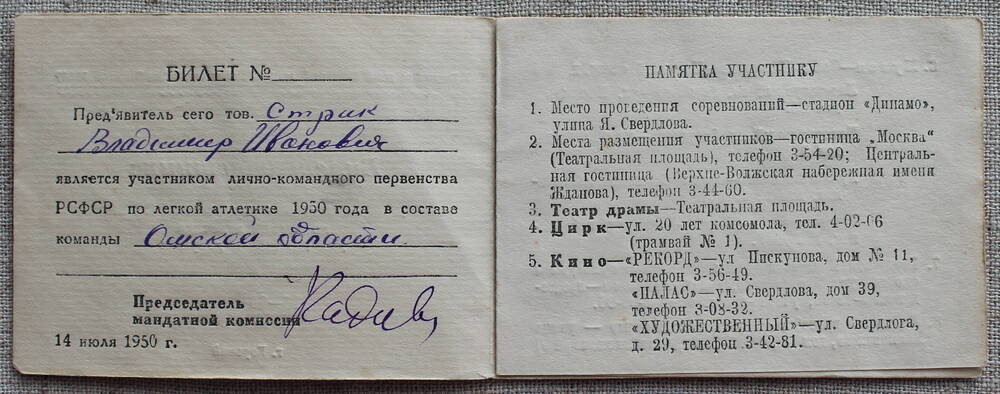 БИЛЕТ №
Пред'явитель сего тов. Стрик
Владимир Иванович
является участником лично-командного первенства
РСФСР по легкой атлетике 1950 года в составе
команды Омской области
Председатель
мандатной комиссии
14 июля 1950 г.
ПАМЯТКА УЧАСТНИКУ
1. Место проведения соревнований—стадион «Динамо»,
улица Я. Свердлова.
2. Места размещения участников—гостиница „Москва"
(Театральная площадь), телефон 3-54-20; Централь-
ная гостиница (Верхне-Волжская набережная имени
Жданова), телефон 3-44-60.
3. Театр драмы—Театральная площадь.
4. Цирк—ул. 20 лет комсомола, тел. 4-02-06
(трамвай № 1).
5. Кино—«РЕКОРД»—ул Пискунова, дом № 11,
телефон 3-56-49.
«ПАЛАС»—ул. Свердлова, дом 39,
телефон 3-08-32.
«ХУДОЖЕСТВЕННЫЙ»—ул. Свердлова,
д. 29, телефон 3-42-81.